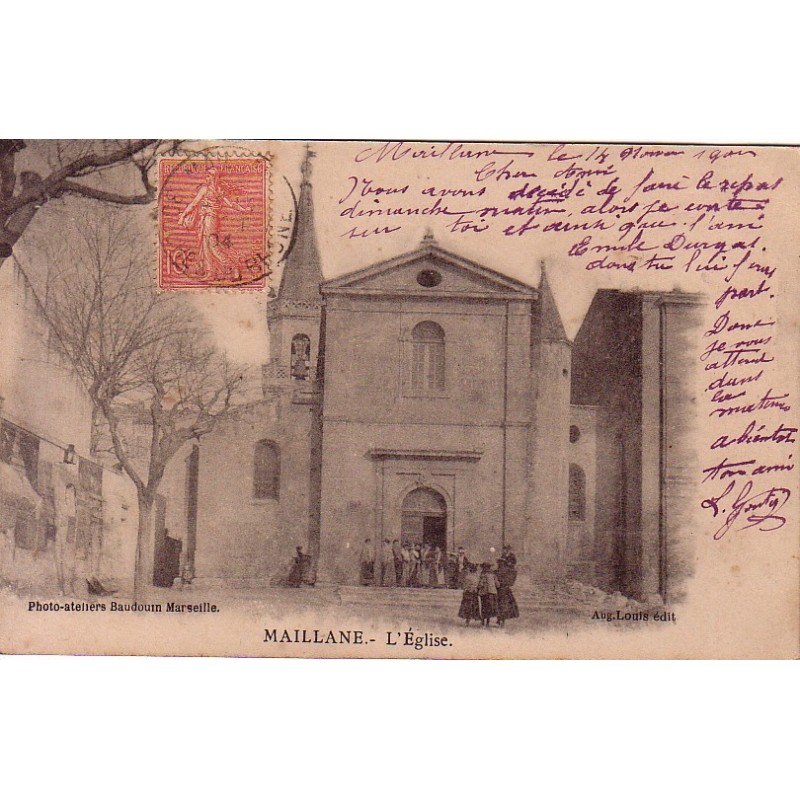 Maillane le 14 1904
Cher Ami
Nous avons decidé de faire le repas
dimanche matin, alors je compte
sur toi et ainsi que l'ami
Emile Durgas.
dont tu lui feras
part.
Donc
je vous
attend
dans
la
matinée
a bientôt
ton ami
L.
FRANÇAISE
10
04
Photo-ateliers Baudouin Marseille.
Aug. Louis édit
MAILLANE.- L'Église.